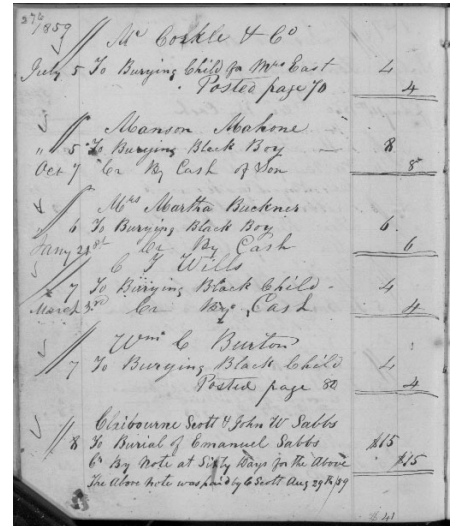 274
1859
Mc Corkle & Co
July 5 To Burying Child for Mrs East 4
Posted page 70 4
Manson Mahone
" 5 To Burying Black Boy 8
Oct 7 Cr By Cash of Son 8
Mrs Martha Buckner
6 To Burying Black Boy 6
Jany 21st Cr By Cash 6
C T Wills
7 To Burying Black Child 4
March 3rd Cr By Cash 4
Wm C Burton
7 To Burying Black Child 4
Posted page 82 4
Claibourne Scott & John W Sabbs
8 To Burial of Emanuel Sabbs $15
Cr By Note at Sixty Days for the Above $15
The Above Note was paid by C Scott Aug 29th/59
41